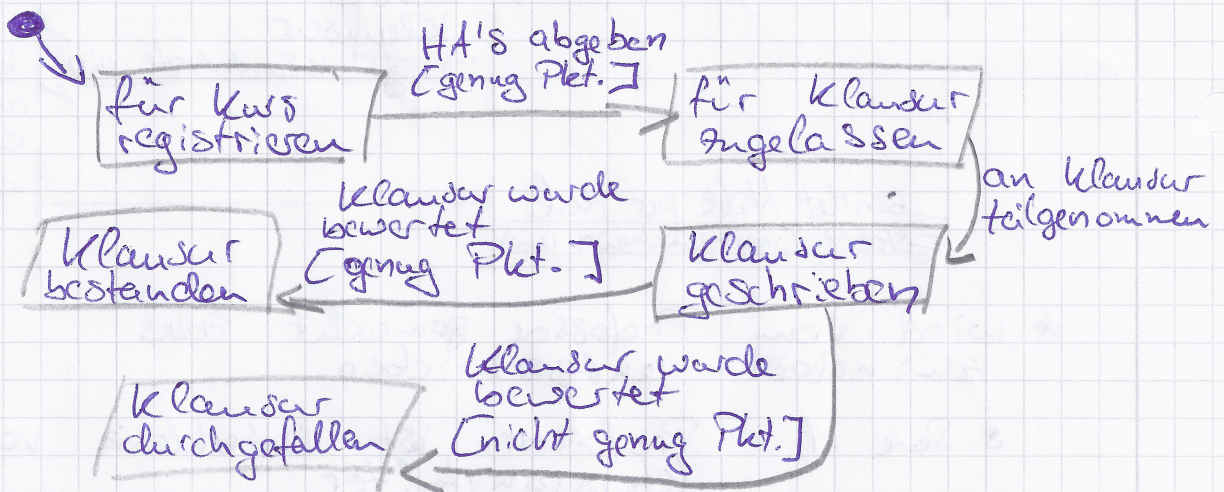 für Kurs
registrieren
HA's abgeben
[genug Pkt.]
für Klausur
zugelassen
an Klausur
teilgenommen
Klausur
geschrieben
Klausur wurde
bewertet
[genug Pkt.]
Klausur
bestanden
Klausur wurde
bewertet
[nicht genug Pkt.]
Klausur
durchgefallen